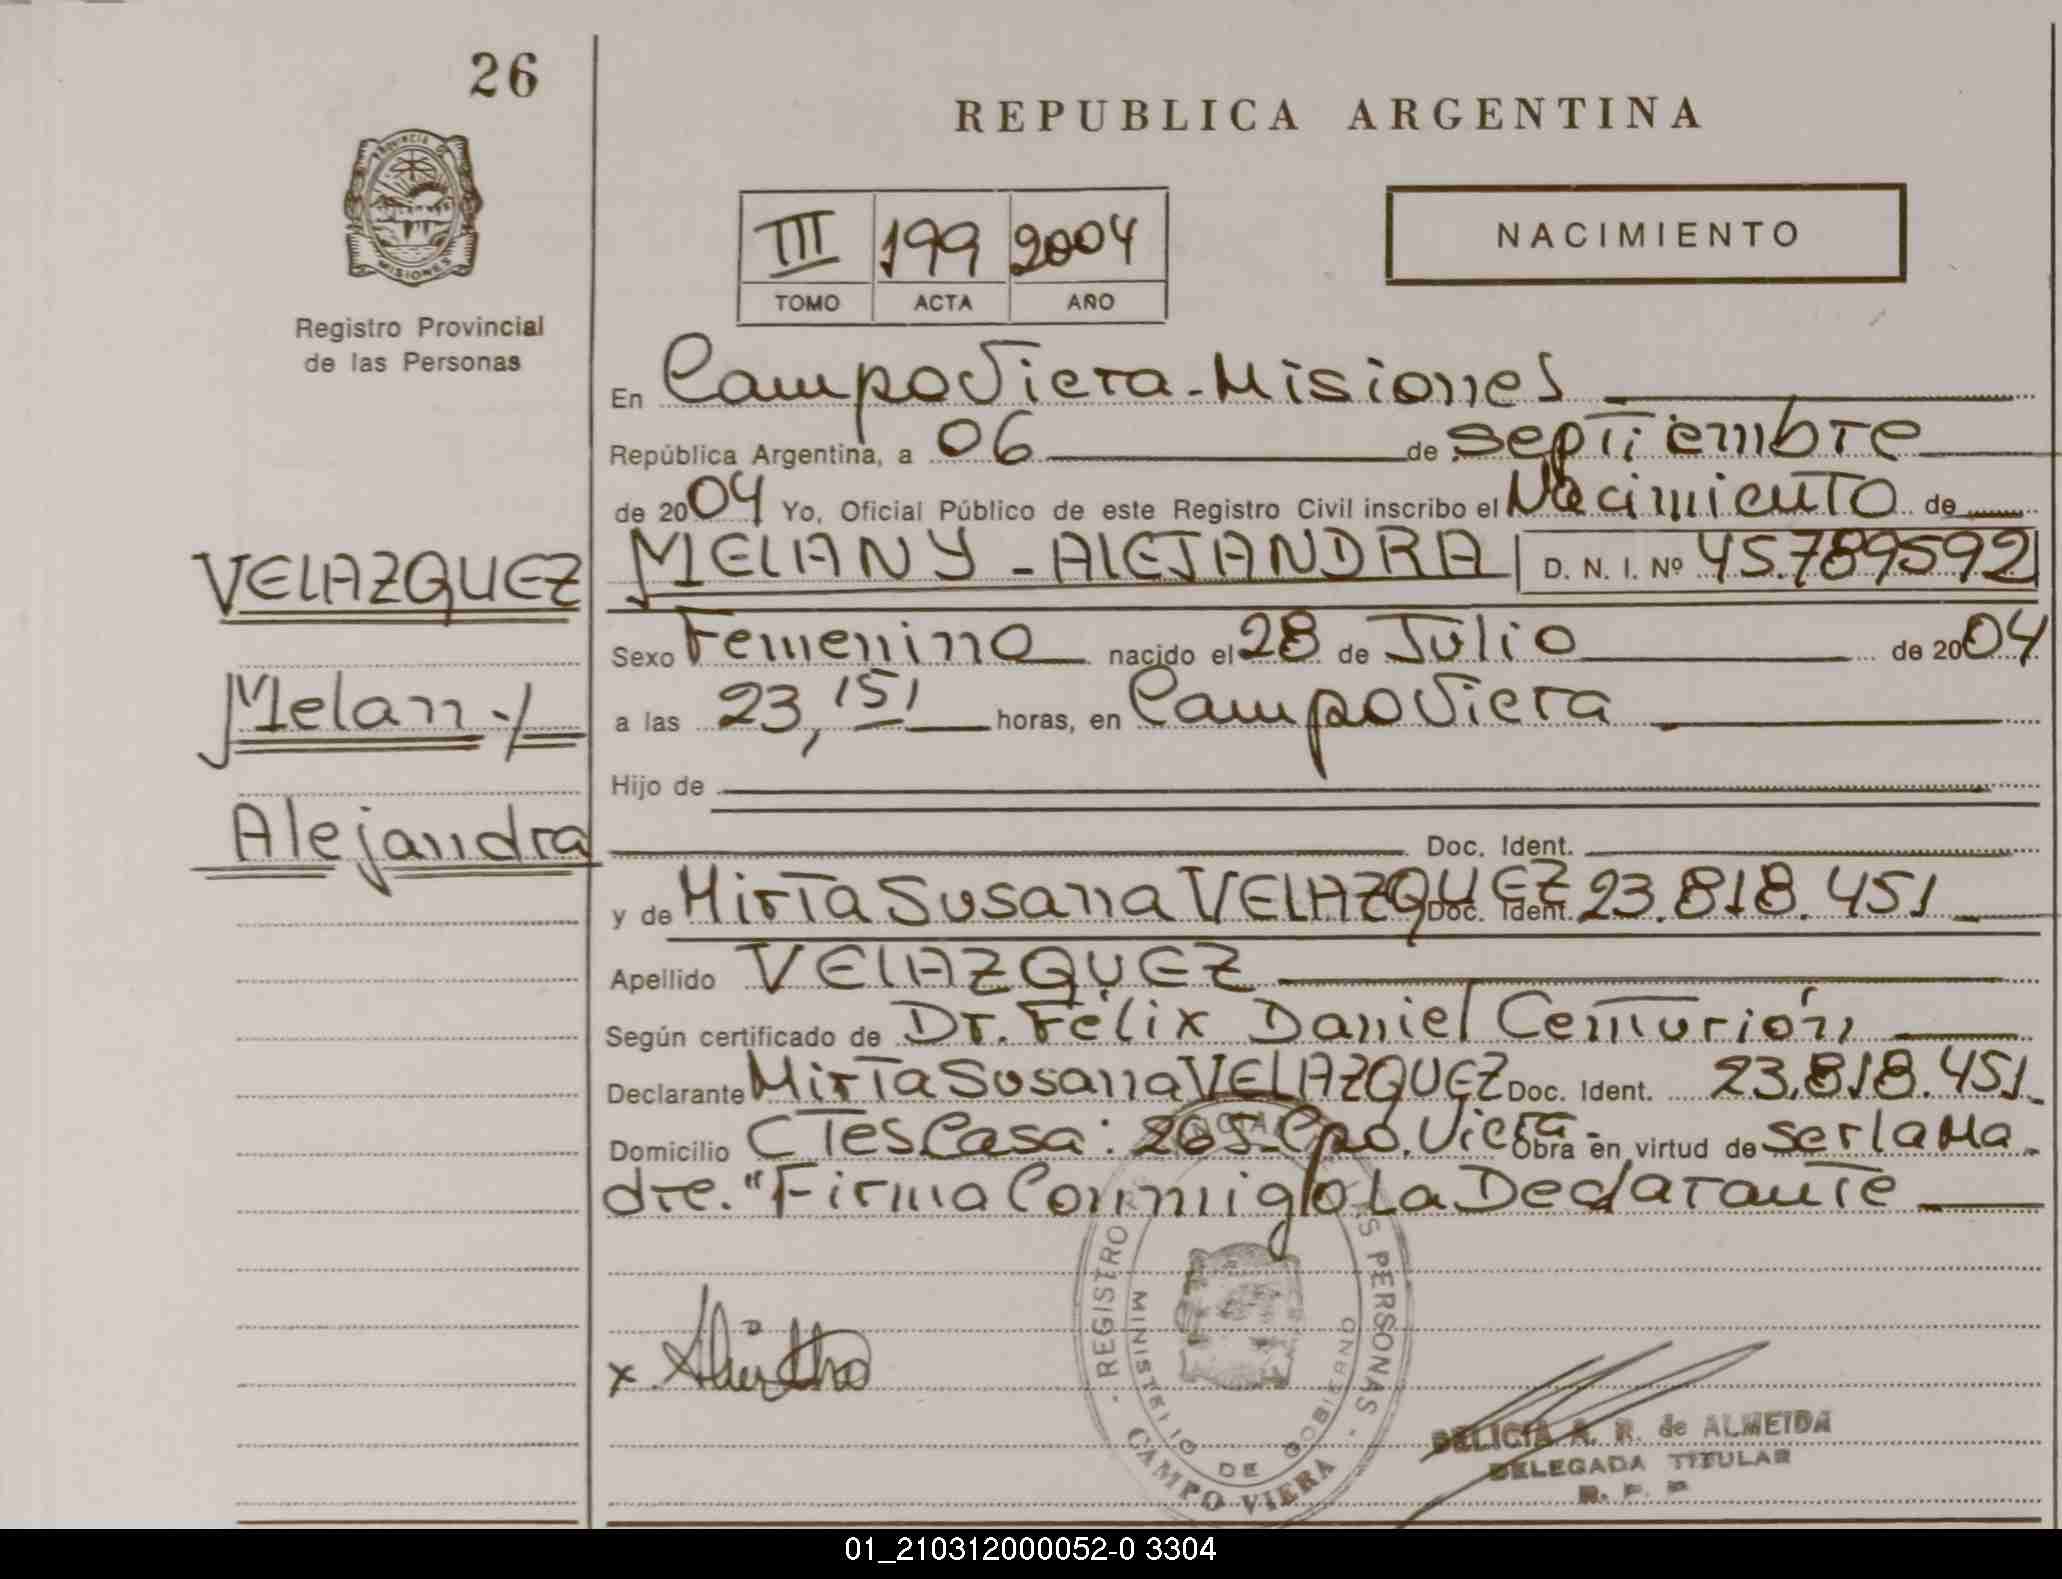 26
REPUBLICA ARGENTINA
PROVINCIA DE
MISIONES
Registro Provincial
de las Personas
III 199 2004
TOMO ACTA AÑO
NACIMIENTO
En Campo Viera - Misiones
República Argentina, a 06 de septiembre
de 2004 Yo, Oficial Público de este Registro Civil inscribo el Nacimiento de
VELAZQUEZ
MELANY - ALEJANDRA D. N. I. Nº 45.789592
Sexo Femenino nacido el 28 de Julio de 2004
Melany
a las 23,15' horas, en Campo Viera
Hijo de
Alejandra
Doc. Ident.
y de Mirta Susana VELAZQUEZ Doc. Ident. 23.818.451
Apellido VELAZQUEZ
Según certificado de Dr. Félix Daniel Centurión
Declarante Mirta Susana VELAZQUEZ Doc. Ident. 23.818.451
Domicilio CTes Casa: 265 - Cpo. Viera - Obra en virtud de ser la Ma
dre. "Firma Conmigo La Declarante
REGISTRO PERSONAS
MINISTERIO DE GOBIERNO
CAMPO VIERA
x
DELICIA R. R. de ALMEIDA
DELEGADA TITULAR
R. P. P.
01_210312000052-0 3304